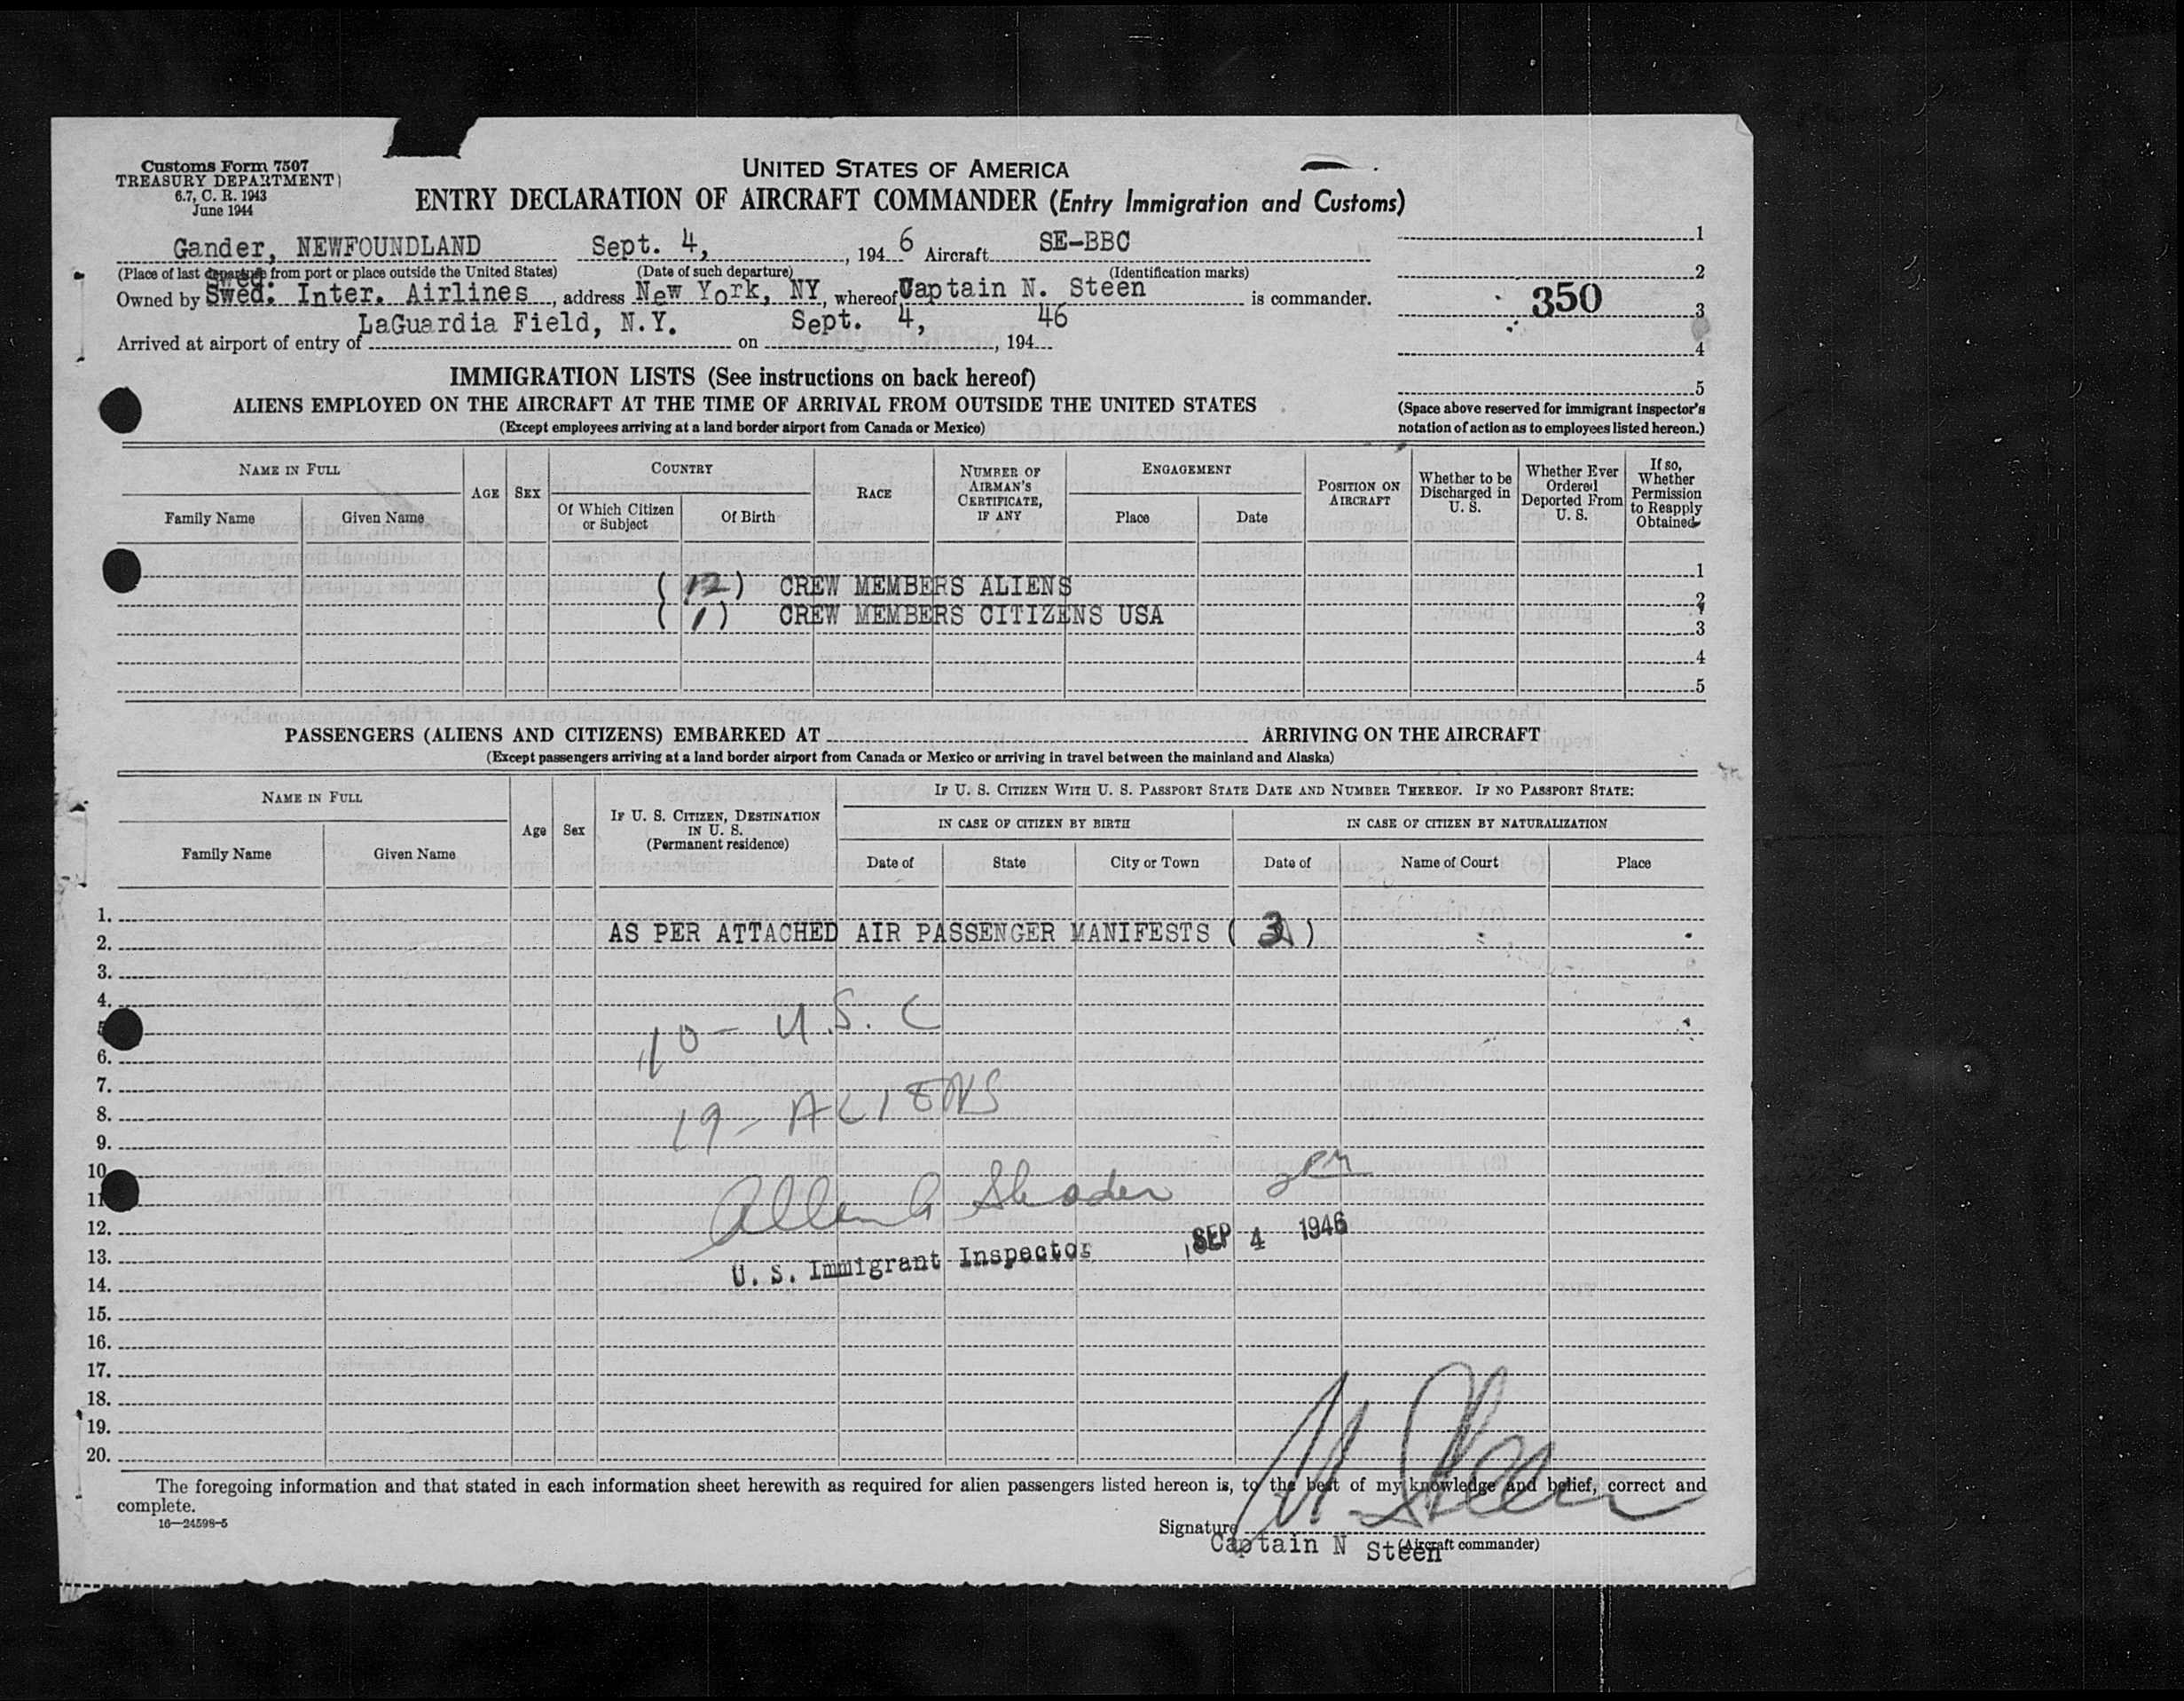 Customs Form 7507
TREASURY DEPARTMENT
6.7, C. R. 1943
June 1944
UNITED STATES OF AMERICA
ENTRY DECLARATION OF AIRCRAFT COMMANDER (Entry Immigration and Customs)
Gander, NEWFOUNDLAND Sept. 4, , 194 6 Aircraft SE-BBC
(Place of last departure from port or place outside the United States) (Date of such departure) (Identification marks)
Owned by Swed. Inter. Airlines , address New York, NY , whereof Captain N. Steen is commander.
LaGuardia Field, N.Y. Sept. 4, 46
Arrived at airport of entry of on , 194
1
2
350 3
4
5
(Space above reserved for immigrant inspector's
notation of action as to employees listed hereon.)
IMMIGRATION LISTS (See instructions on back hereof)
ALIENS EMPLOYED ON THE AIRCRAFT AT THE TIME OF ARRIVAL FROM OUTSIDE THE UNITED STATES
(Except employees arriving at a land border airport from Canada or Mexico)
NAME IN FULL
Family Name Given Name
AGE SEX
COUNTRY
Of Which Citizen
or Subject
Of Birth
RACE
NUMBER OF
AIRMAN'S
CERTIFICATE,
IF ANY
ENGAGEMENT
Place Date
POSITION ON
AIRCRAFT
Whether to be
Discharged in
U. S.
Whether Ever
Ordered
Deported From
U. S.
If so,
Whether
Permission
to Reapply
Obtained
1
( 12 ) CREW MEMBERS ALIENS
2
( 1 ) CREW MEMBERS CITIZENS USA
3
4
5
PASSENGERS (ALIENS AND CITIZENS) EMBARKED AT ARRIVING ON THE AIRCRAFT
(Except passengers arriving at a land border airport from Canada or Mexico or arriving in travel between the mainland and Alaska)
NAME IN FULL
Family Name Given Name
Age Sex
IF U. S. CITIZEN, DESTINATION
IN U. S.
(Permanent residence)
IF U. S. CITIZEN WITH U. S. PASSPORT STATE DATE AND NUMBER THEREOF. IF NO PASSPORT STATE:
IN CASE OF CITIZEN BY BIRTH IN CASE OF CITIZEN BY NATURALIZATION
Date of State City or Town Date of Name of Court Place
1.
AS PER ATTACHED AIR PASSENGER MANIFESTS ( 3 )
2.
3.
4.
10 - U.S.C
5
6.
7.
19 - ALIENS
8.
9.
10
11
12.
SEP 4 1946
13.
U. S. Immigrant Inspector
14.
15.
16.
17.
18.
19.
20.
N. Steen
The foregoing information and that stated in each information sheet herewith as required for alien passengers listed hereon is, to the best of my knowledge and belief, correct and
complete.
16—24598-5
Signature
Captain N Steen (Aircraft commander)